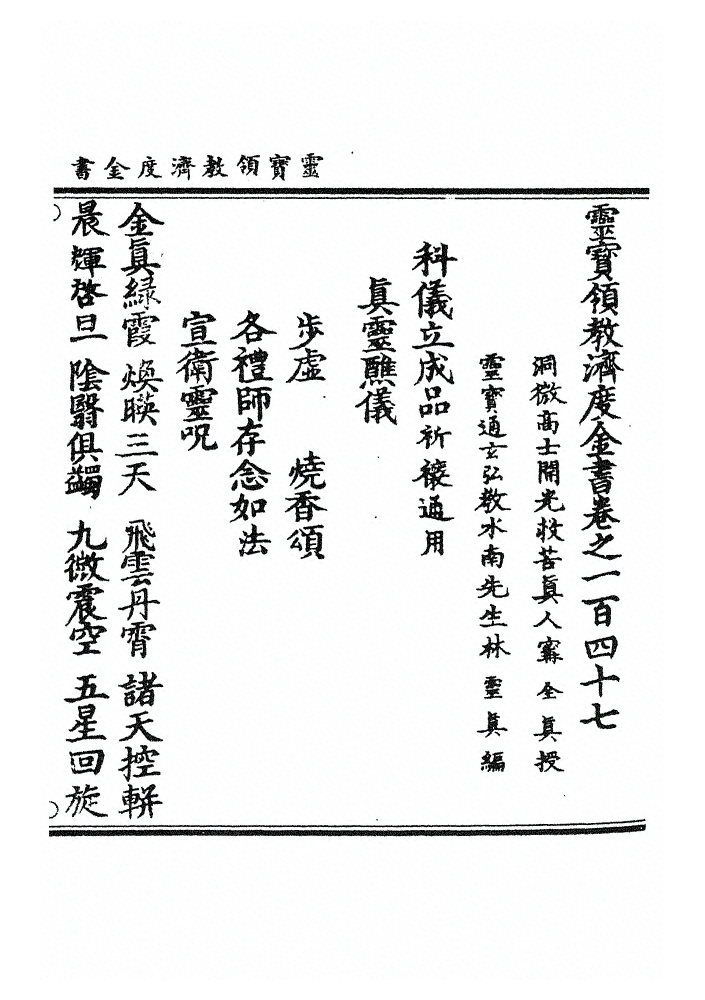 靈寶領教濟度金書
靈寶領教濟度金書卷之一百四十七
洞微高士開光救苦真人甯全真授
靈寶通玄弘教水南先生林靈真編
科儀立成品祈禳通用
真靈醮儀
步虛　燒香頌
各禮師存念如法
宣衛靈呪
金真綠霞　煥暎三天　飛雲丹霄　諸天控軿
晨輝啓旦　陰翳俱蠲　九微震空　五星回旋